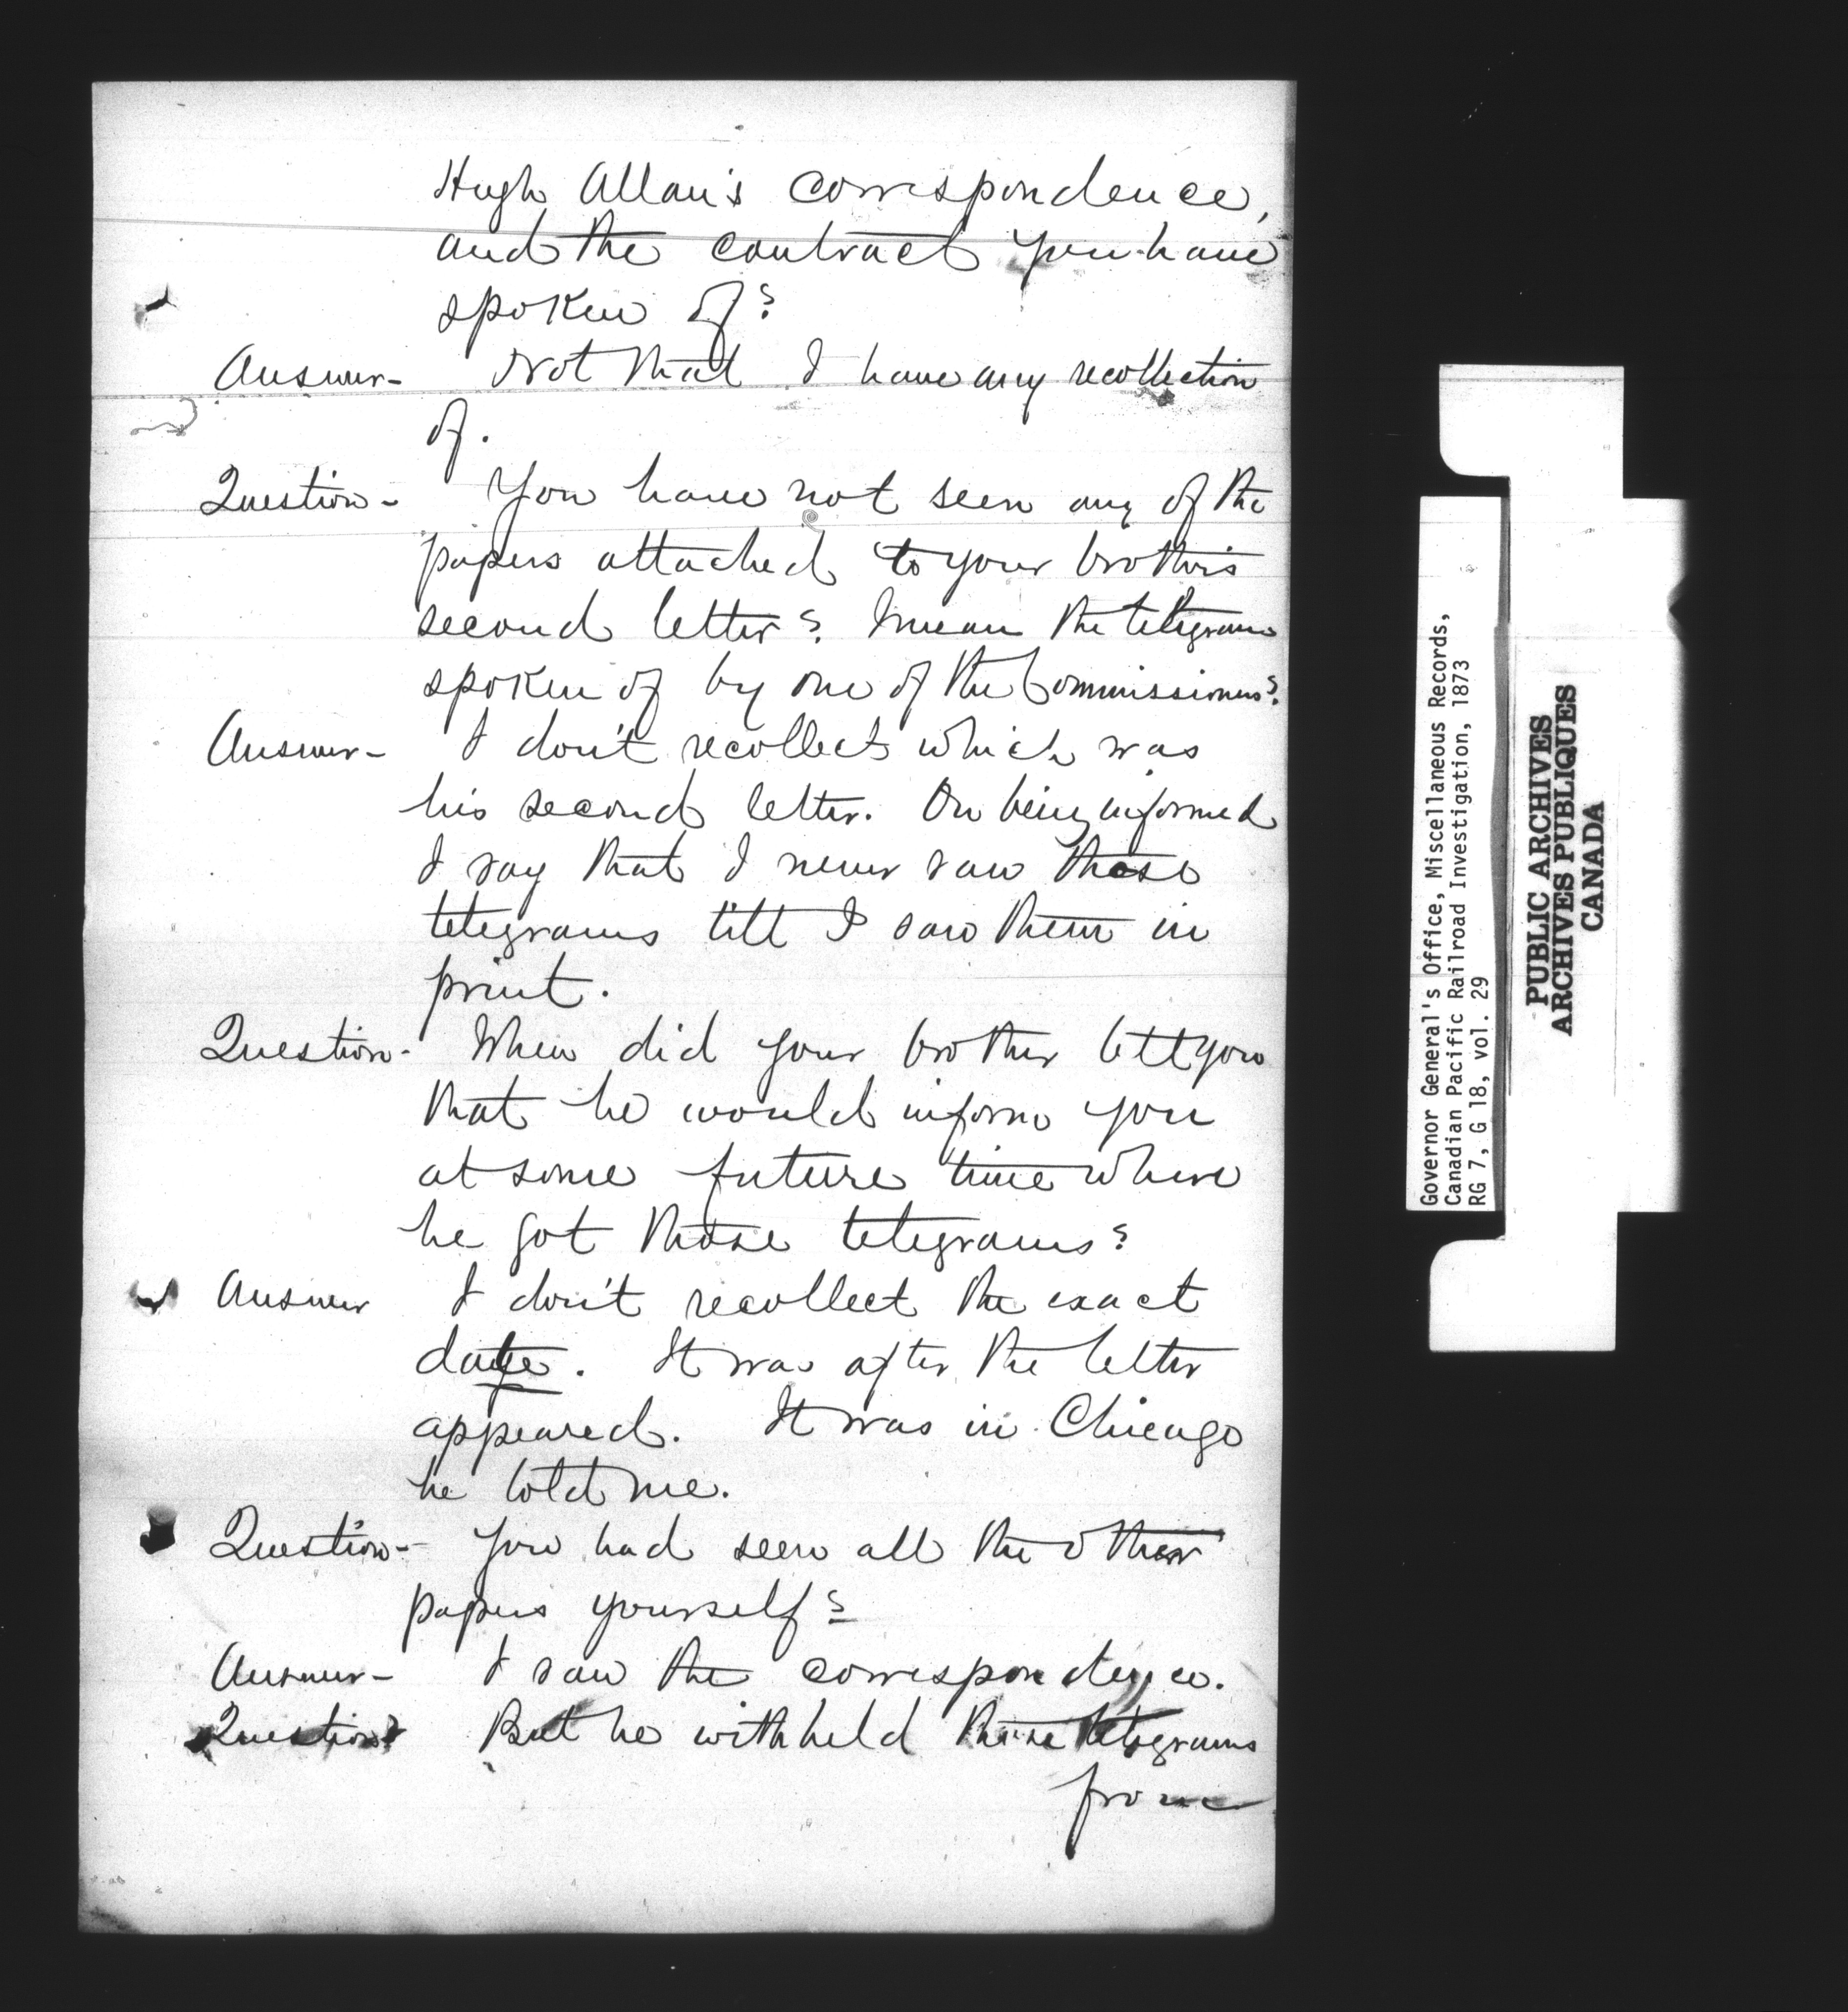 Hugh Allan's correspondence,
and the contract you have
spoken of?
Answer- Not that I have any recollection
of.
Question- You have not seen any of the
papers attached to your brother's
second letter? I mean the telegrams
spoken of by one of the Commissioners?
Answer- I don't recollect which was
his second letter. On being informed
I say that I never saw those
telegrams till I saw them in
print.
Question- When did your brother tell you
that he would inform you
at some future time where
he got those telegrams?
Answer I don't recollect the exact
date. It was after the letter
appeared. It was in Chicago
he told me.
Question- You had seen all the other
papers yourself?
Answer- I saw the correspondence.
Question- But he withheld these telegrams
from
Governor General's Office, Miscellaneous Records,
Canadian Pacific Railroad Investigation, 1873
RG 7, G 18, vol. 29
PUBLIC ARCHIVES
ARCHIVES PUBLIQUES
CANADA